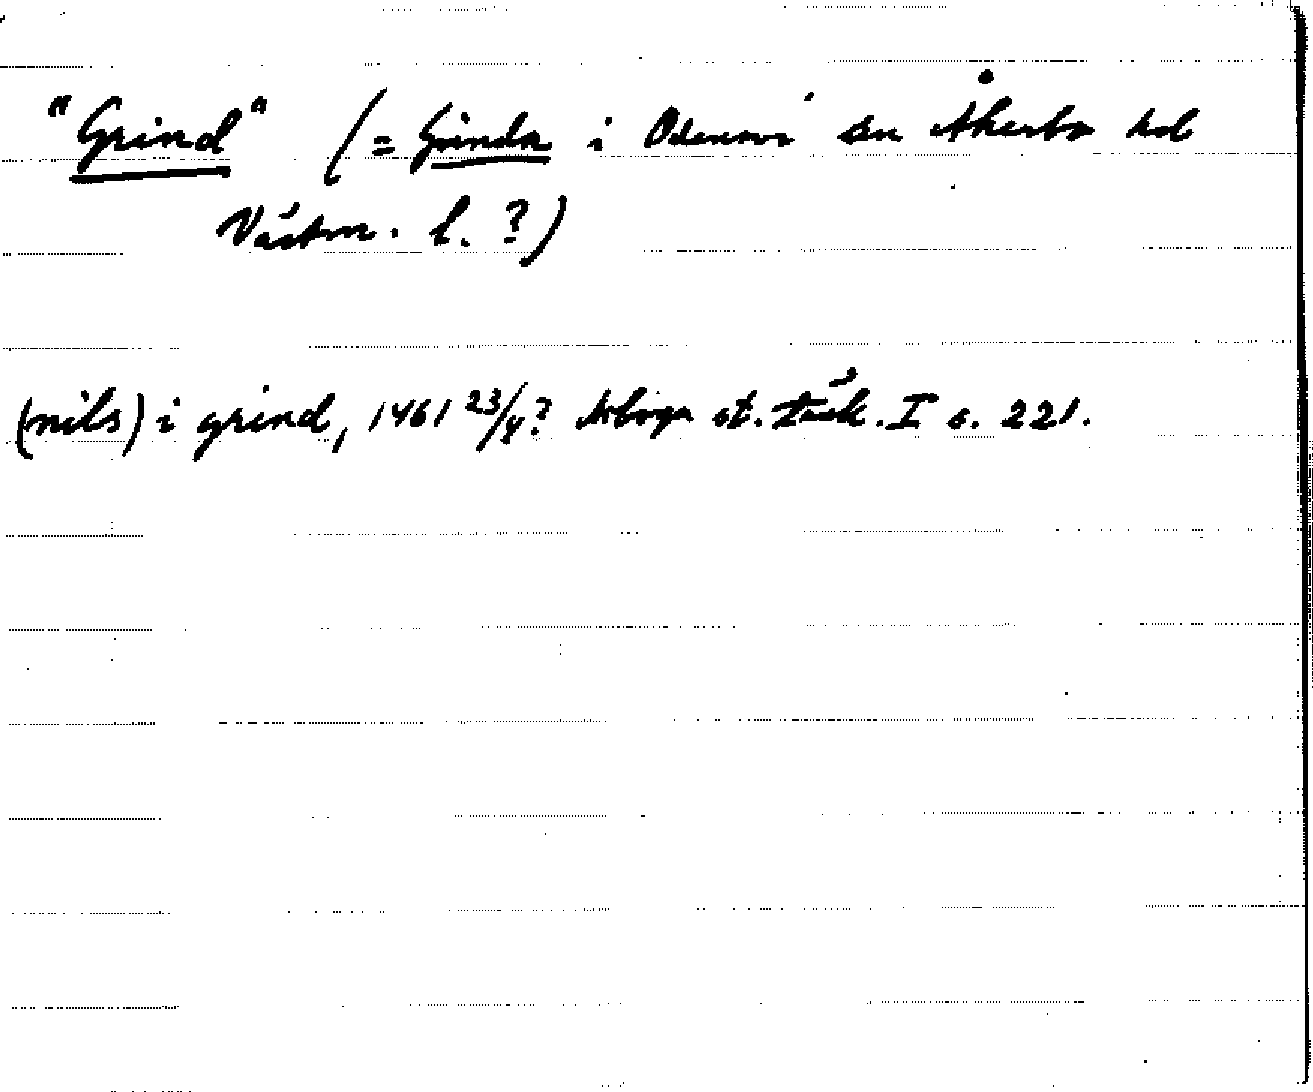 "Grind" (= Grinda i Odensvi sn Åkerbo hd
Västm. l. ?)
(nils) i grind, 1461 23/4? Arboga st. tänk. I s. 221.